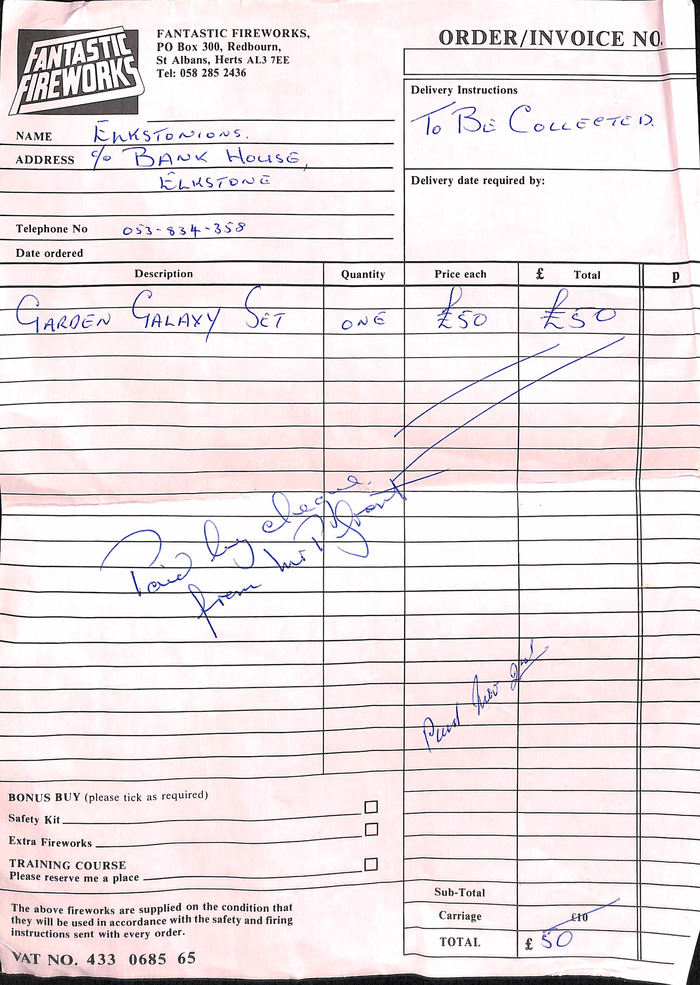 FANTASTIC FIREWORKS
FANTASTIC FIREWORKS,
PO Box 300, Redbourn,
St Albans, Herts AL3 7EE
Tel: 058 285 2436
ORDER/INVOICE NO.
Delivery Instructions
TO BE COLLECTED.
NAME ELKSTONIONS.
ADDRESS c/o BANK HOUSE,
ELKSTONE
Delivery date required by:
Telephone No 053-834-358
Date ordered
Description Quantity Price each £ Total p
GARDEN GALAXY SET ONE £50 £50
Paid by cheque
from Mr P Grant
Paid Nov 2nd
BONUS BUY (please tick as required)
Safety Kit
Extra Fireworks
TRAINING COURSE
Please reserve me a place
The above fireworks are supplied on the condition that
they will be used in accordance with the safety and firing
instructions sent with every order.
VAT NO. 433 0685 65
Sub-Total
Carriage £10
TOTAL £ 50